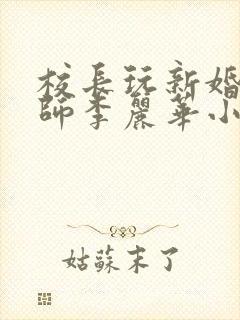 校長玩新婚
師李麗華小
姑蘇末了